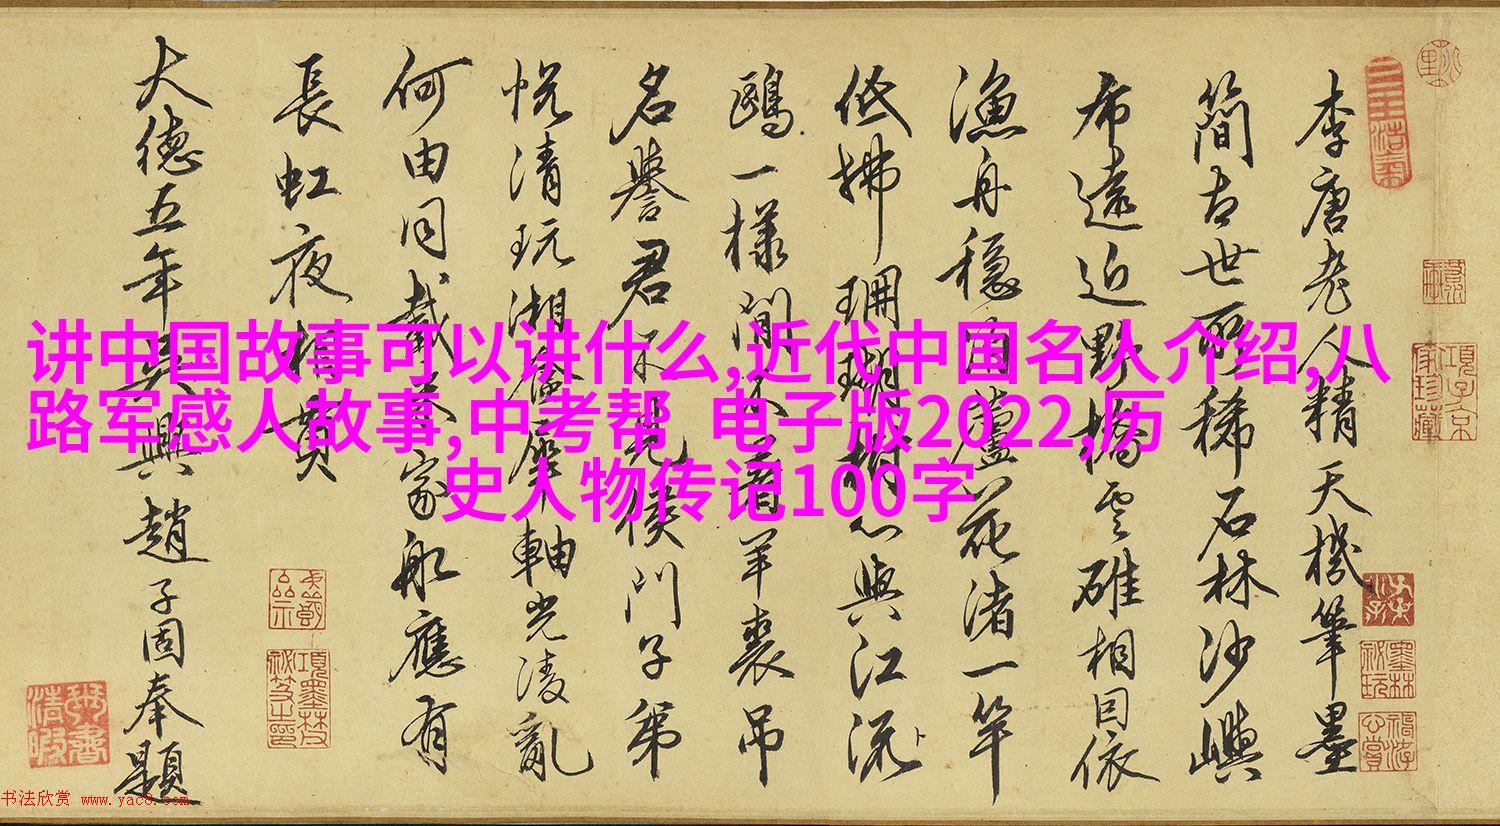 李唐老人精天機筆墨
簡古世所稀石林沙嶼
布遠近野橋雲碓相因依
漁舟穩泊蘆花渚一竿
低拂珊瑚樹心與江流
鷗一樣閒不著羊裘吊
名譽君不見侯門子弟
悅清玩湘簾犀軸光凌亂
何由同載米家船應有
長虹夜相貫
大德五年吳興趙子固奉題
讲中国故事可以讲什么,近代中国名人介绍,八
路军感人故事,中考帮 电子版2022,历
史人物传记100字
书法欣赏 www.yac8.com